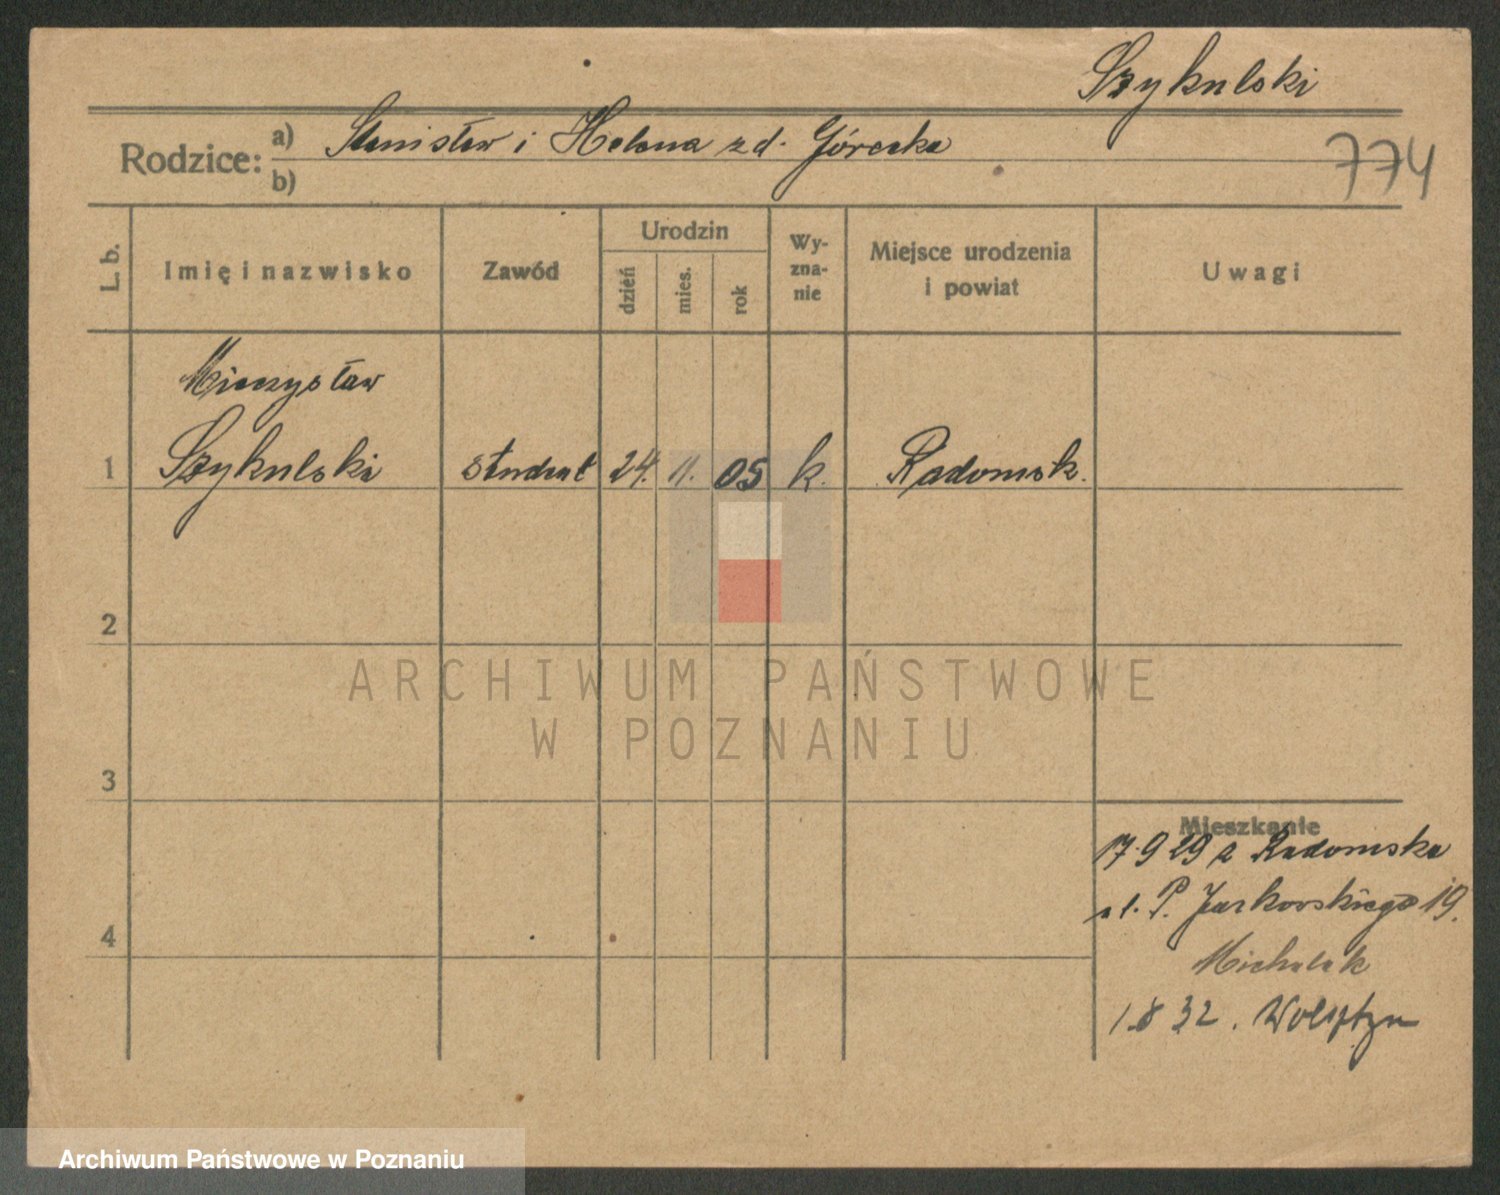 Szykulski
Rodzice: a) Stanisław i Helena z d. Górecka
b)
774
L. b.
Imię i nazwisko
Zawód
Urodzin
dzień
mies.
rok
Wy-
zna-
nie
Miejsce urodzenia
i powiat
Uwagi
Mieczysław
1 Szykulski student 24. 11. 05 k. Radomsk.
2
3
4
Mieszkanie
17.9 29 z Radomska
ul. P. Jackowskiego 19.
Michalak
1.8 32. Wolsztyn
ARCHIWUM PAŃSTWOWE
W POZNANIU
Archiwum Państwowe w Poznaniu